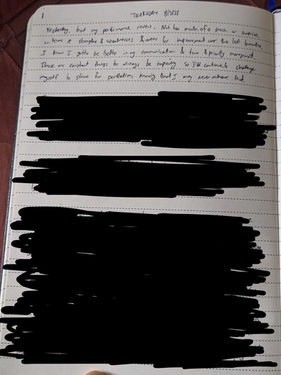 1
Thursday
Yesterday, had my performance review. Not too much of a shock or surprise,
in terms of strengths & weaknesses & areas for improvement over the last
I know I gotta be better in my communication & time & priority management.
These are constant things to always be improving. So I'll continue to challenge
myself to strive for perfection, knowing that I may never achieve that.